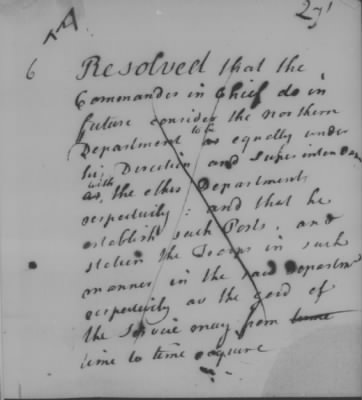 271
6 Resolved that the
Commander in Chief do in
future consider the northern
to be
Department as equally under
his Direction and Superintendan
with
as, the other Departments
respectivily: and that he
establish such Posts, and
station the Troops in such
manner in the said Departm
respectivily as the good of
the Service may from time
time to time require